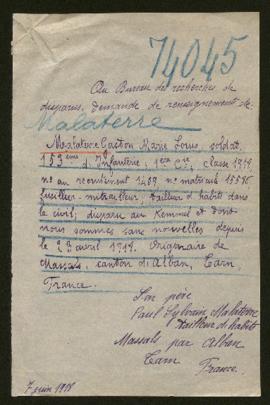 74045
Au Bureau de recherches de
disparus, demande de renseignements de:
Malaterre
Malaterre Gaston Marie Louis, soldat,
153ème d'Infanterie, 1ère Cie, classe 1918
n° au recrutement 1269 n° matricule
fusilier-mitrailleur, tailleur d'habits dans
le civil; disparu au Kemmel et dont
nous sommes sans nouvelles depuis
le 23 avril 1918. Originaire de
Massals, canton d'Alban, Tarn,
France.
Son père
Paul Sylvain Malaterre
tailleur d'habits
Massals par Alban
Tarn
France
7 juin 1918